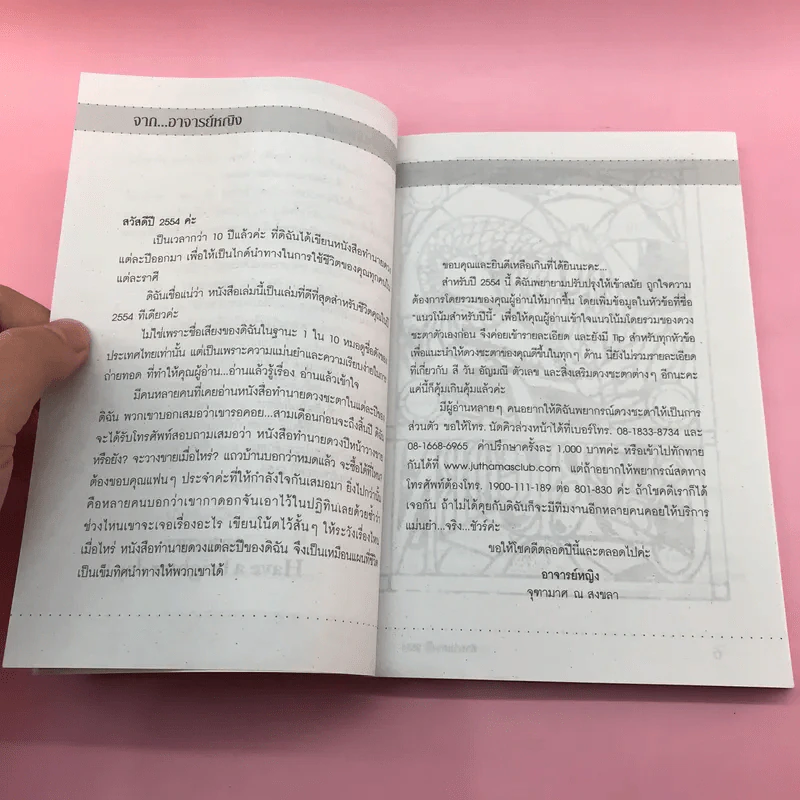 จาก...อาจารย์หญิง
สวัสดีปี 2554 ค่ะ
เป็นเวลากว่า 10 ปีแล้วค่ะ ที่ดิฉันได้เขียนหนังสือทำนายดวง
แต่ละปีออกมา เพื่อให้เป็นไกด์นำทางในการใช้ชีวิตของคุณทุกคนใน
แต่ละราศี
ดิฉันเชื่อแน่ว่า หนังสือเล่มนี้เป็นเล่มที่ดีที่สุดสำหรับชีวิตคุณในปี
2554 ทีเดียวค่ะ
ไม่ใช่เพราะชื่อเสียงของดิฉันในฐานะ 1 ใน 10 หมอดูชื่อดังของ
ประเทศไทยเท่านั้น แต่เป็นเพราะความแม่นยำและความเรียบง่ายในการ
ถ่ายทอด ที่ทำให้คุณผู้อ่าน...อ่านแล้วรู้เรื่อง อ่านแล้วเข้าใจ
มีคนหลายคนที่เคยอ่านหนังสือทำนายดวงชะตาในแต่ละปีของ
ดิฉัน พวกเขาบอกเสมอว่าเขารอคอย...สามเดือนก่อนจะถึงสิ้นปี ดิฉัน
จะได้รับโทรศัพท์สอบถามเสมอว่า หนังสือทำนายดวงปีหน้าวางขาย
หรือยัง? จะวางขายเมื่อไหร่? แถวบ้านบอกว่าหมดแล้ว จะซื้อได้ที่ไหน?
ต้องขอบคุณแฟนๆ ประจำค่ะที่ให้กำลังใจกันเสมอมา ยิ่งไปกว่านั้น
คือหลายคนบอกว่าเขากาดอกจันเอาไว้ในปฏิทินเลยด้วยซ้ำว่า
ช่วงไหนเขาจะเจอเรื่องอะไร เขียนโน้ตไว้สั้นๆ ให้ระวังเรื่องไหน
เมื่อไหร่ หนังสือทำนายดวงแต่ละปีของดิฉัน จึงเป็นเหมือนแผนที่ชีวิต
เป็นเข็มทิศนำทางให้พวกเขาได้
ขอบคุณและยินดีเหลือเกินที่ได้ยินนะคะ...
สำหรับปี 2554 นี้ ดิฉันพยายามปรับปรุงให้เข้าสมัย ถูกใจความ
ต้องการโดยรวมของคุณผู้อ่านให้มากขึ้น โดยเพิ่มข้อมูลในหัวข้อที่ชื่อ
"แนวโน้มสำหรับปีนี้" เพื่อให้คุณผู้อ่านเข้าใจแนวโน้มโดยรวมของดวง
ชะตาตัวเองก่อน จึงค่อยเข้ารายละเอียด และยังมี Tip สำหรับทุกหัวข้อ
เพื่อแนะนำให้ดวงชะตาของคุณดีขึ้นในทุกๆ ด้าน นี่ยังไม่รวมรายละเอียด
ที่เกี่ยวกับ สี วัน อัญมณี ตัวเลข และสิ่งเสริมดวงชะตาต่างๆ อีกนะคะ
แค่นี้ก็คุ้มเกินคุ้มแล้วค่ะ
มีผู้อ่านหลายๆ คนอยากให้ดิฉันพยากรณ์ดวงชะตาให้เป็นการ
ส่วนตัว ขอให้โทร. นัดคิวล่วงหน้าได้ที่เบอร์โทร. 08-1833-8734 และ
08-1668-6965 ค่าปรึกษาครั้งละ 1,000 บาทค่ะ หรือเข้าไปทักทาย
กันได้ที่ www.juthamasclub.com แต่ถ้าอยากให้พยากรณ์สดทาง
โทรศัพท์ต้องโทร. 1900-111-189 ต่อ 801-830 ค่ะ ถ้าโชคดีเราก็ได้
เจอกัน ถ้าไม่ได้คุยกับดิฉันก็จะมีทีมงานอีกหลายคนคอยให้บริการ
แม่นยำ...จริง...ชัวร์ค่ะ
ขอให้โชคดีตลอดปีนี้และตลอดไปค่ะ
อาจารย์หญิง
จุฑามาศ ณ สงขลา